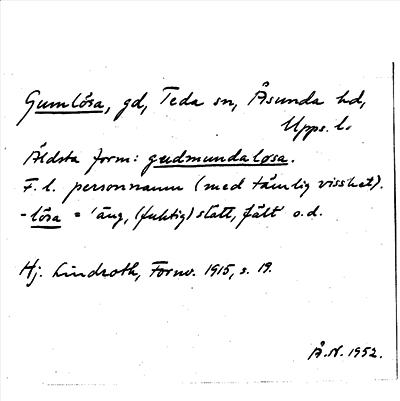 Gumlösa, gd, Teda sn, Åsunda hd,
Upps. l.
Äldsta form: gudmundalosa.
F. l. personnamn (med tämlig visshet).
-lösa = 'äng, (fuktig) slätt, fält o.d.
Hj. Lindroth, Fornv. 1915, s. 19.
Å.N. 1952.